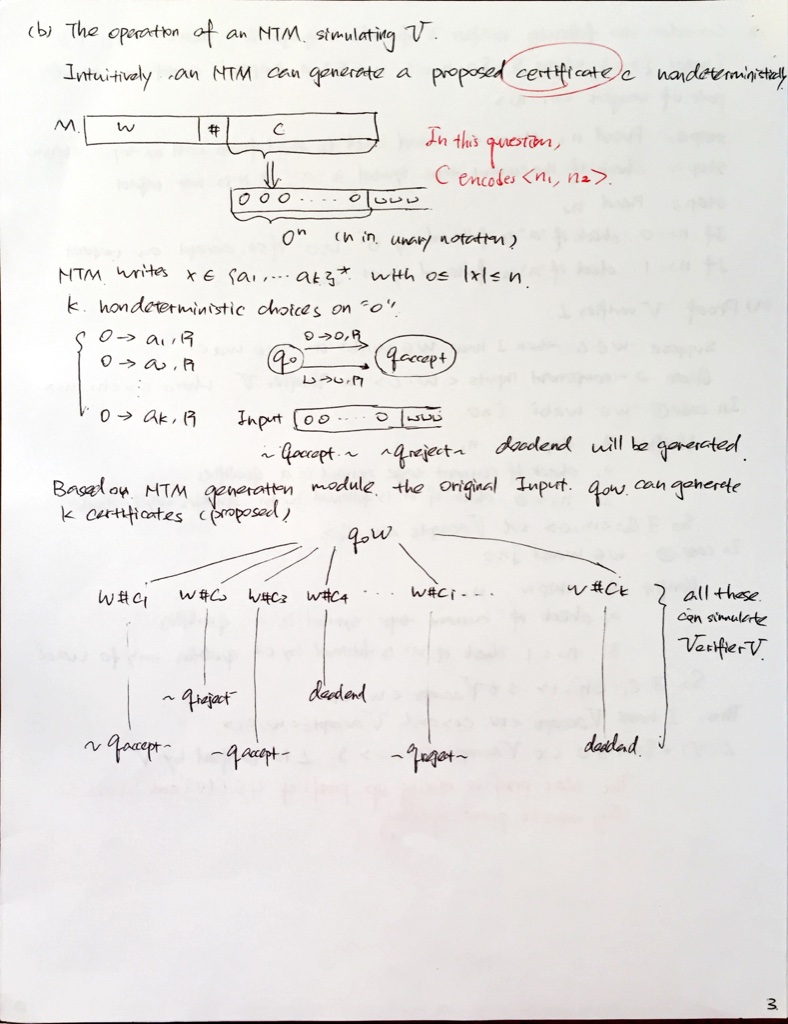 (b) The operation of an NTM simulating V.
Intuitively, an NTM can generate a proposed certificate c nondeterministically
M. W # C
In this question,
C encodes <n1, n2>.
0 0 0 ..... 0 ⊔⊔⊔
0ⁿ (n in unary notation)
NTM writes x ∈ {a1, ... ak}* with 0 ≤ |x| ≤ n.
k nondeterministic choices on "0".
0 → a1, R
0 → a2, R
0 → ak, R
0 → 0, R
q0 qaccept
⊔ → ⊔, R
Input 0 0 ..... 0 ⊔⊔⊔
~ qaccept ~ ~ qreject ~ deadend will be generated.
Based on NTM generation module. the original Input. q0w. can generate
k certificates (proposed)
q0w
w#c1 w#c2 w#c3 w#c4 ... w#ci ... w#ck
all these
can simulate
Verifier V.
~ qreject deadend
~ qaccept ~ ~ qaccept ~ ~ qreject ~ deadend.
3